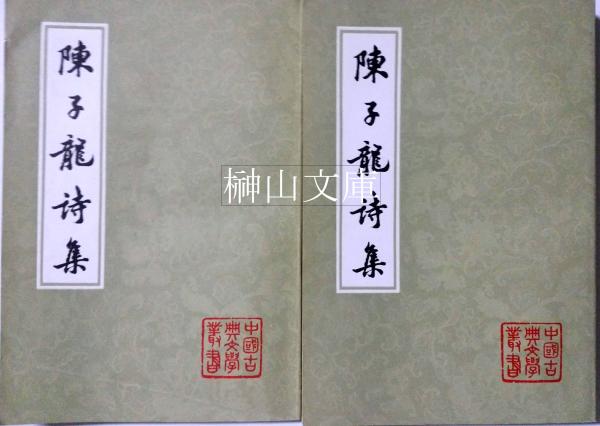 陳子龍詩集
中國古
典文學
叢書
榊山文庫
陳子龍詩集
中國古
典文學
叢書